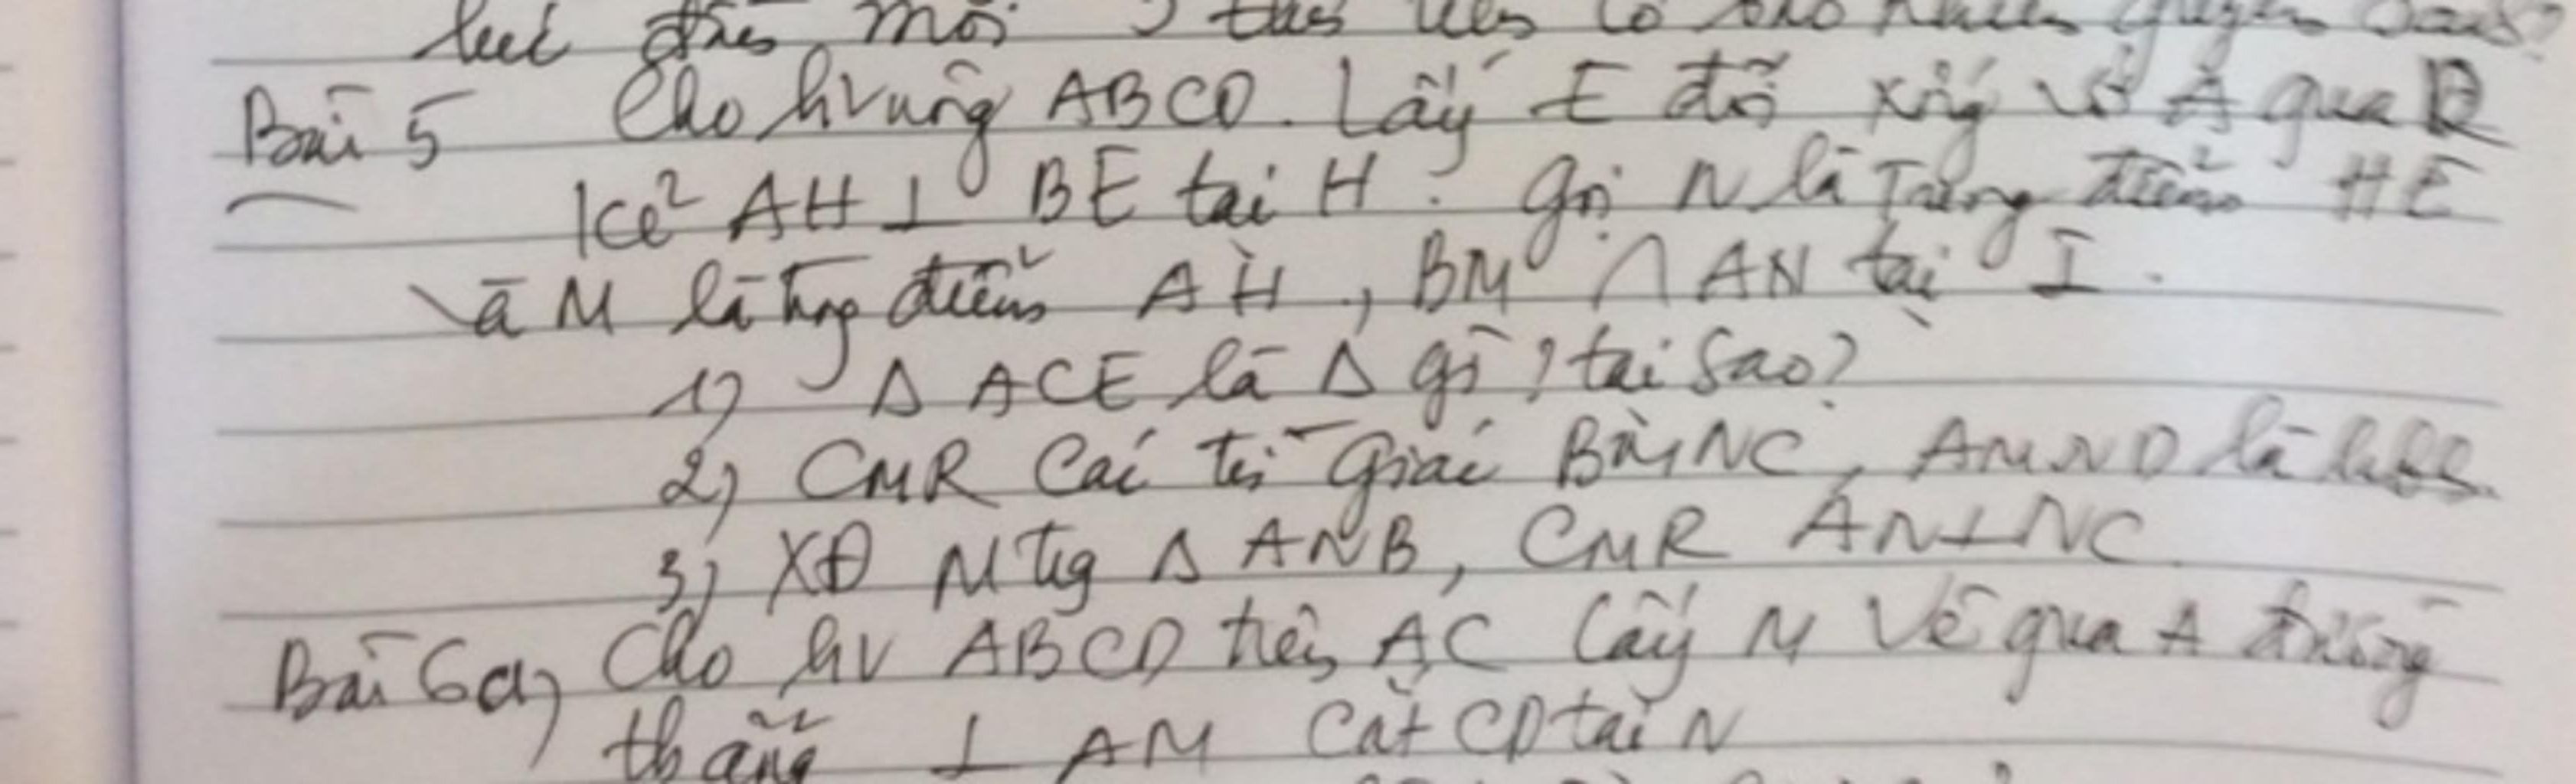 mỗi
Bài 5 Cho hvuông ABCD. Lấy E đối xứng với A qua D
Kẻ AH ⊥ BE tại H. Gọi N là Trung điểm HE
và M là trg điểm AH, BM ∩ AN tại I.
1) Δ ACE là Δ gì? tại sao?
2) CMR Các tứ giác BMNC, AMND là hbh.
3) XĐ M trg Δ ANB, CMR AN⊥NC
Bài 6a) Cho hv ABCD trên AC lấy M Vẽ qua A đường
thẳng ⊥ AM cắt CD tại N